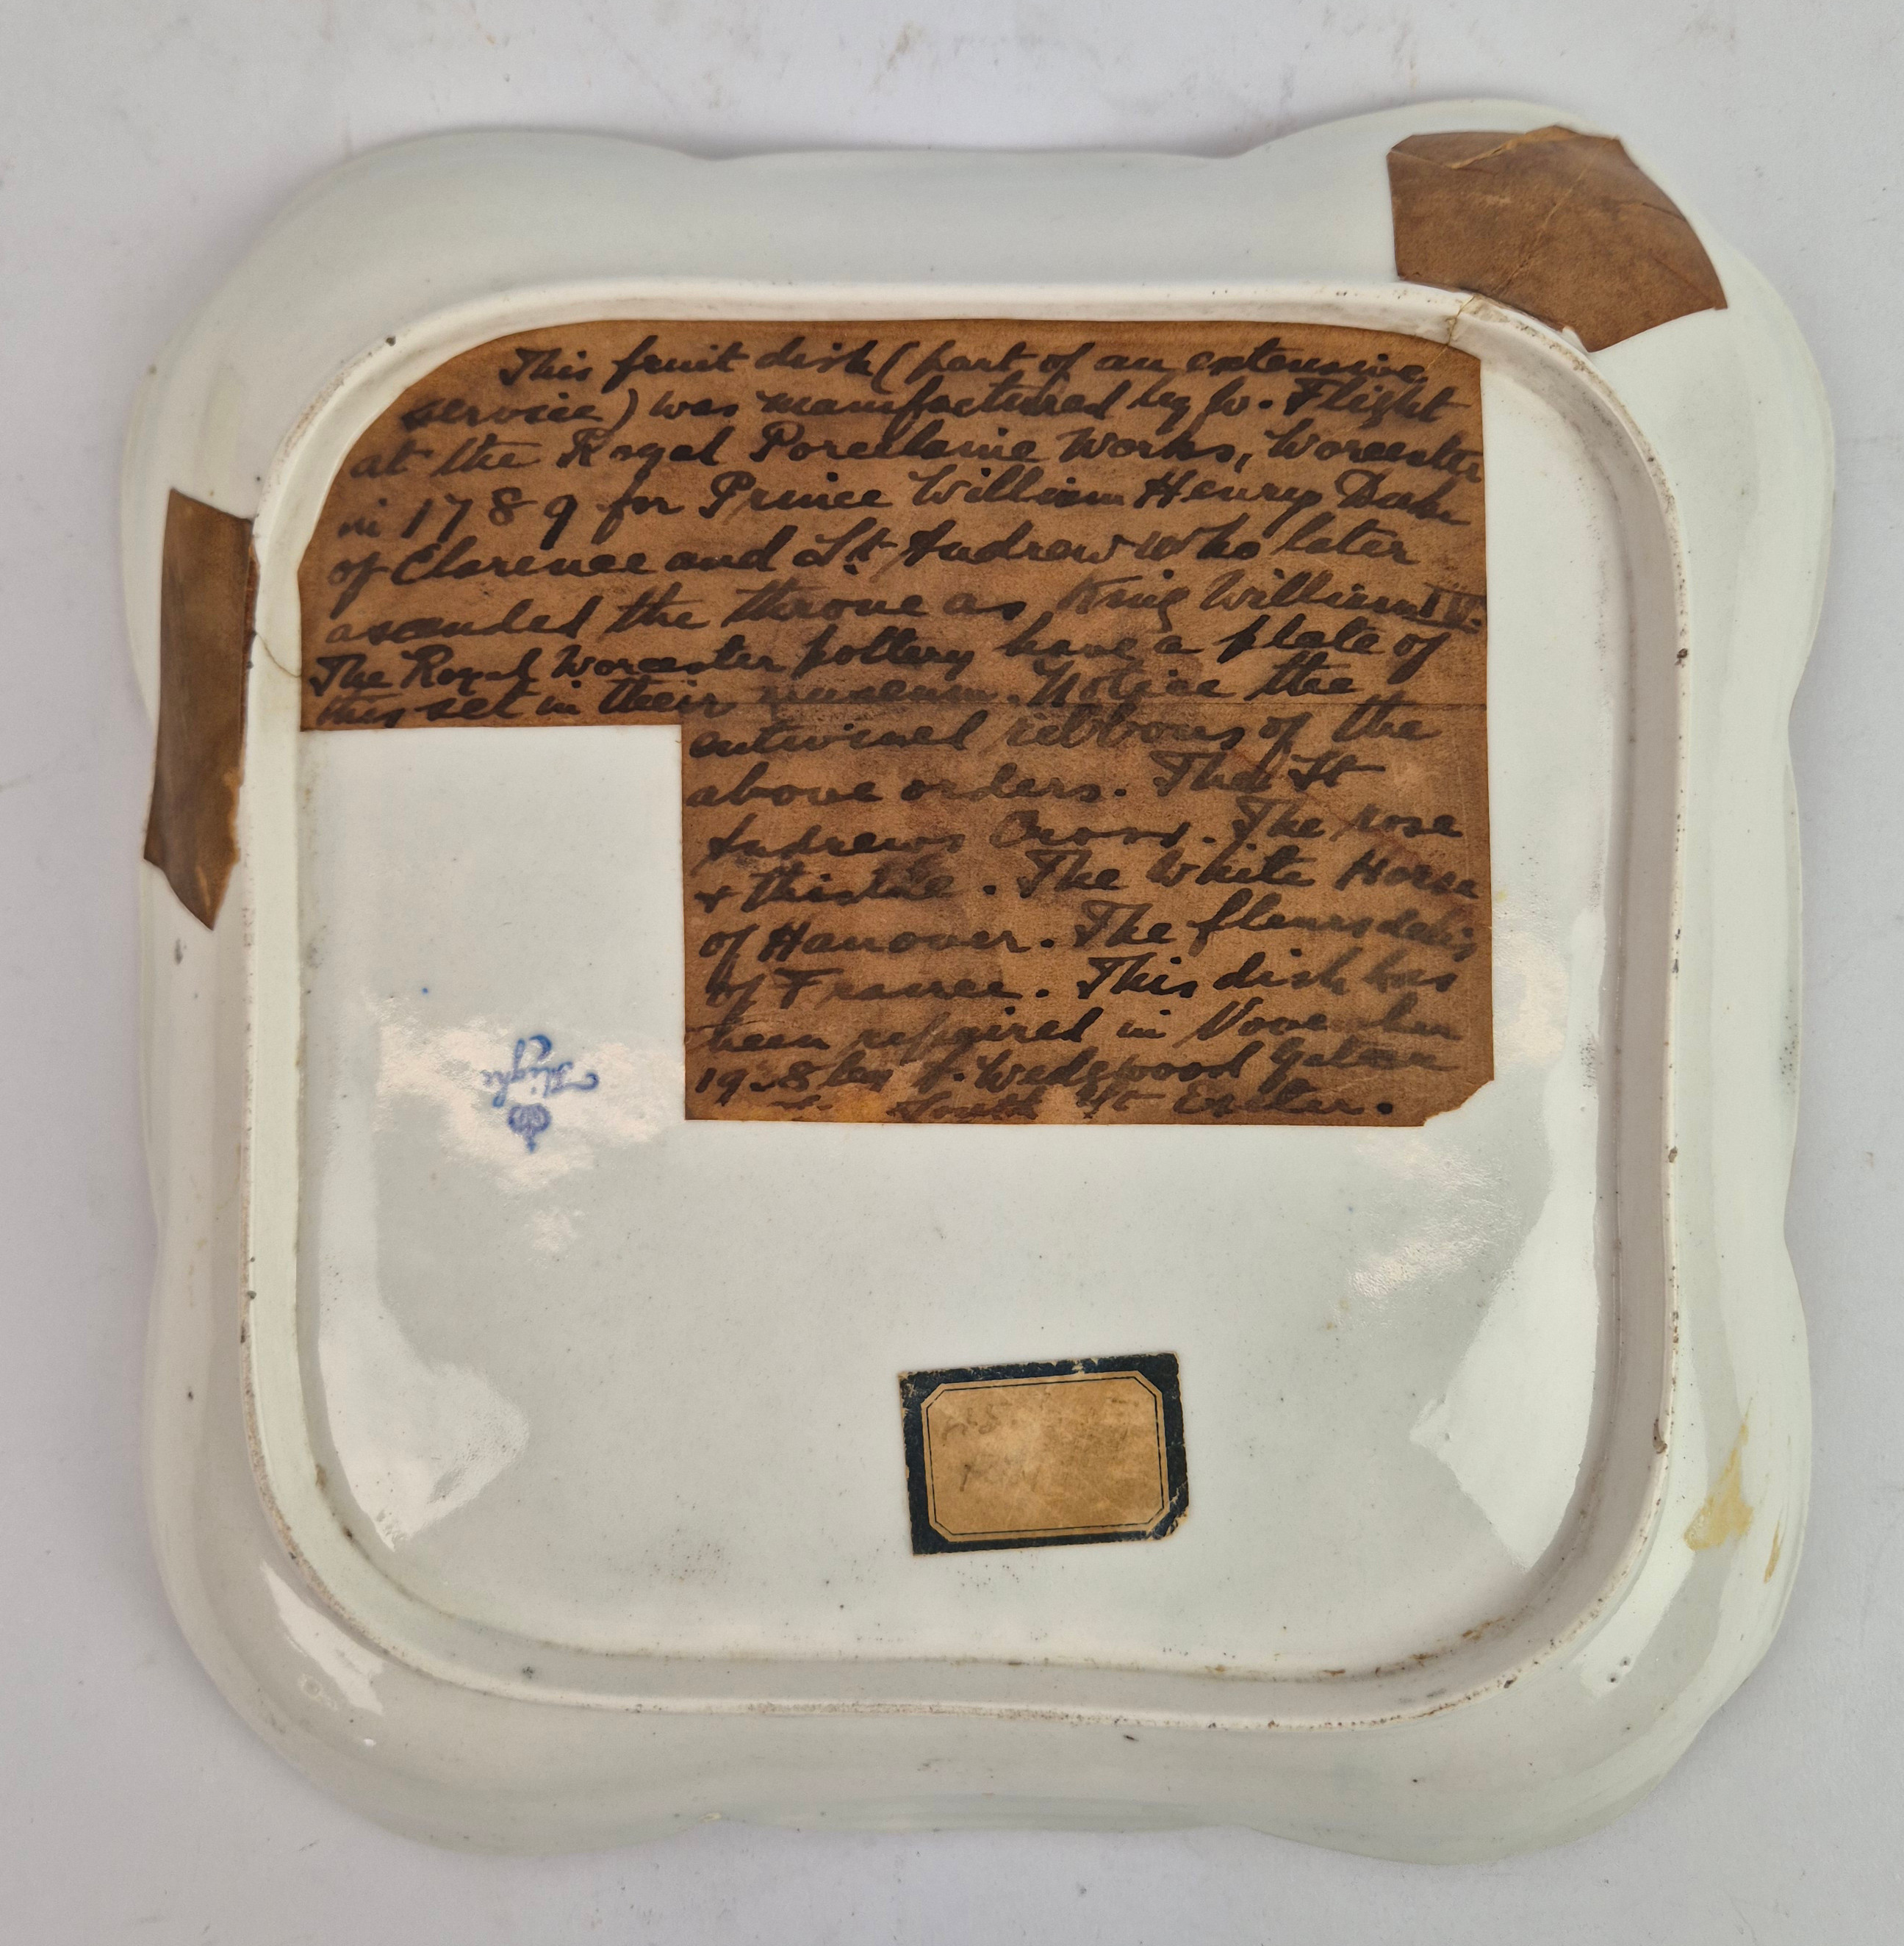 This fruit dish (part of an extensive
service) was manufactured by W. Flight
at the Royal Porcellaine Works, Worcester
in 1789 for Prince William Henry Duke
of Clarence and St. Andrew who later
ascended the throne as King William IV.
The Royal Worcester pottery have a plate of
this set in their museum. Notice the
entwined ribbons of the
above orders. The St
Andrews Cross. The rose
& thistle. The White Horse
of Hanover. The fleurs de lis
of France. This dish has
been repaired in November
by Wedgwood
South St Exeter.
Flight